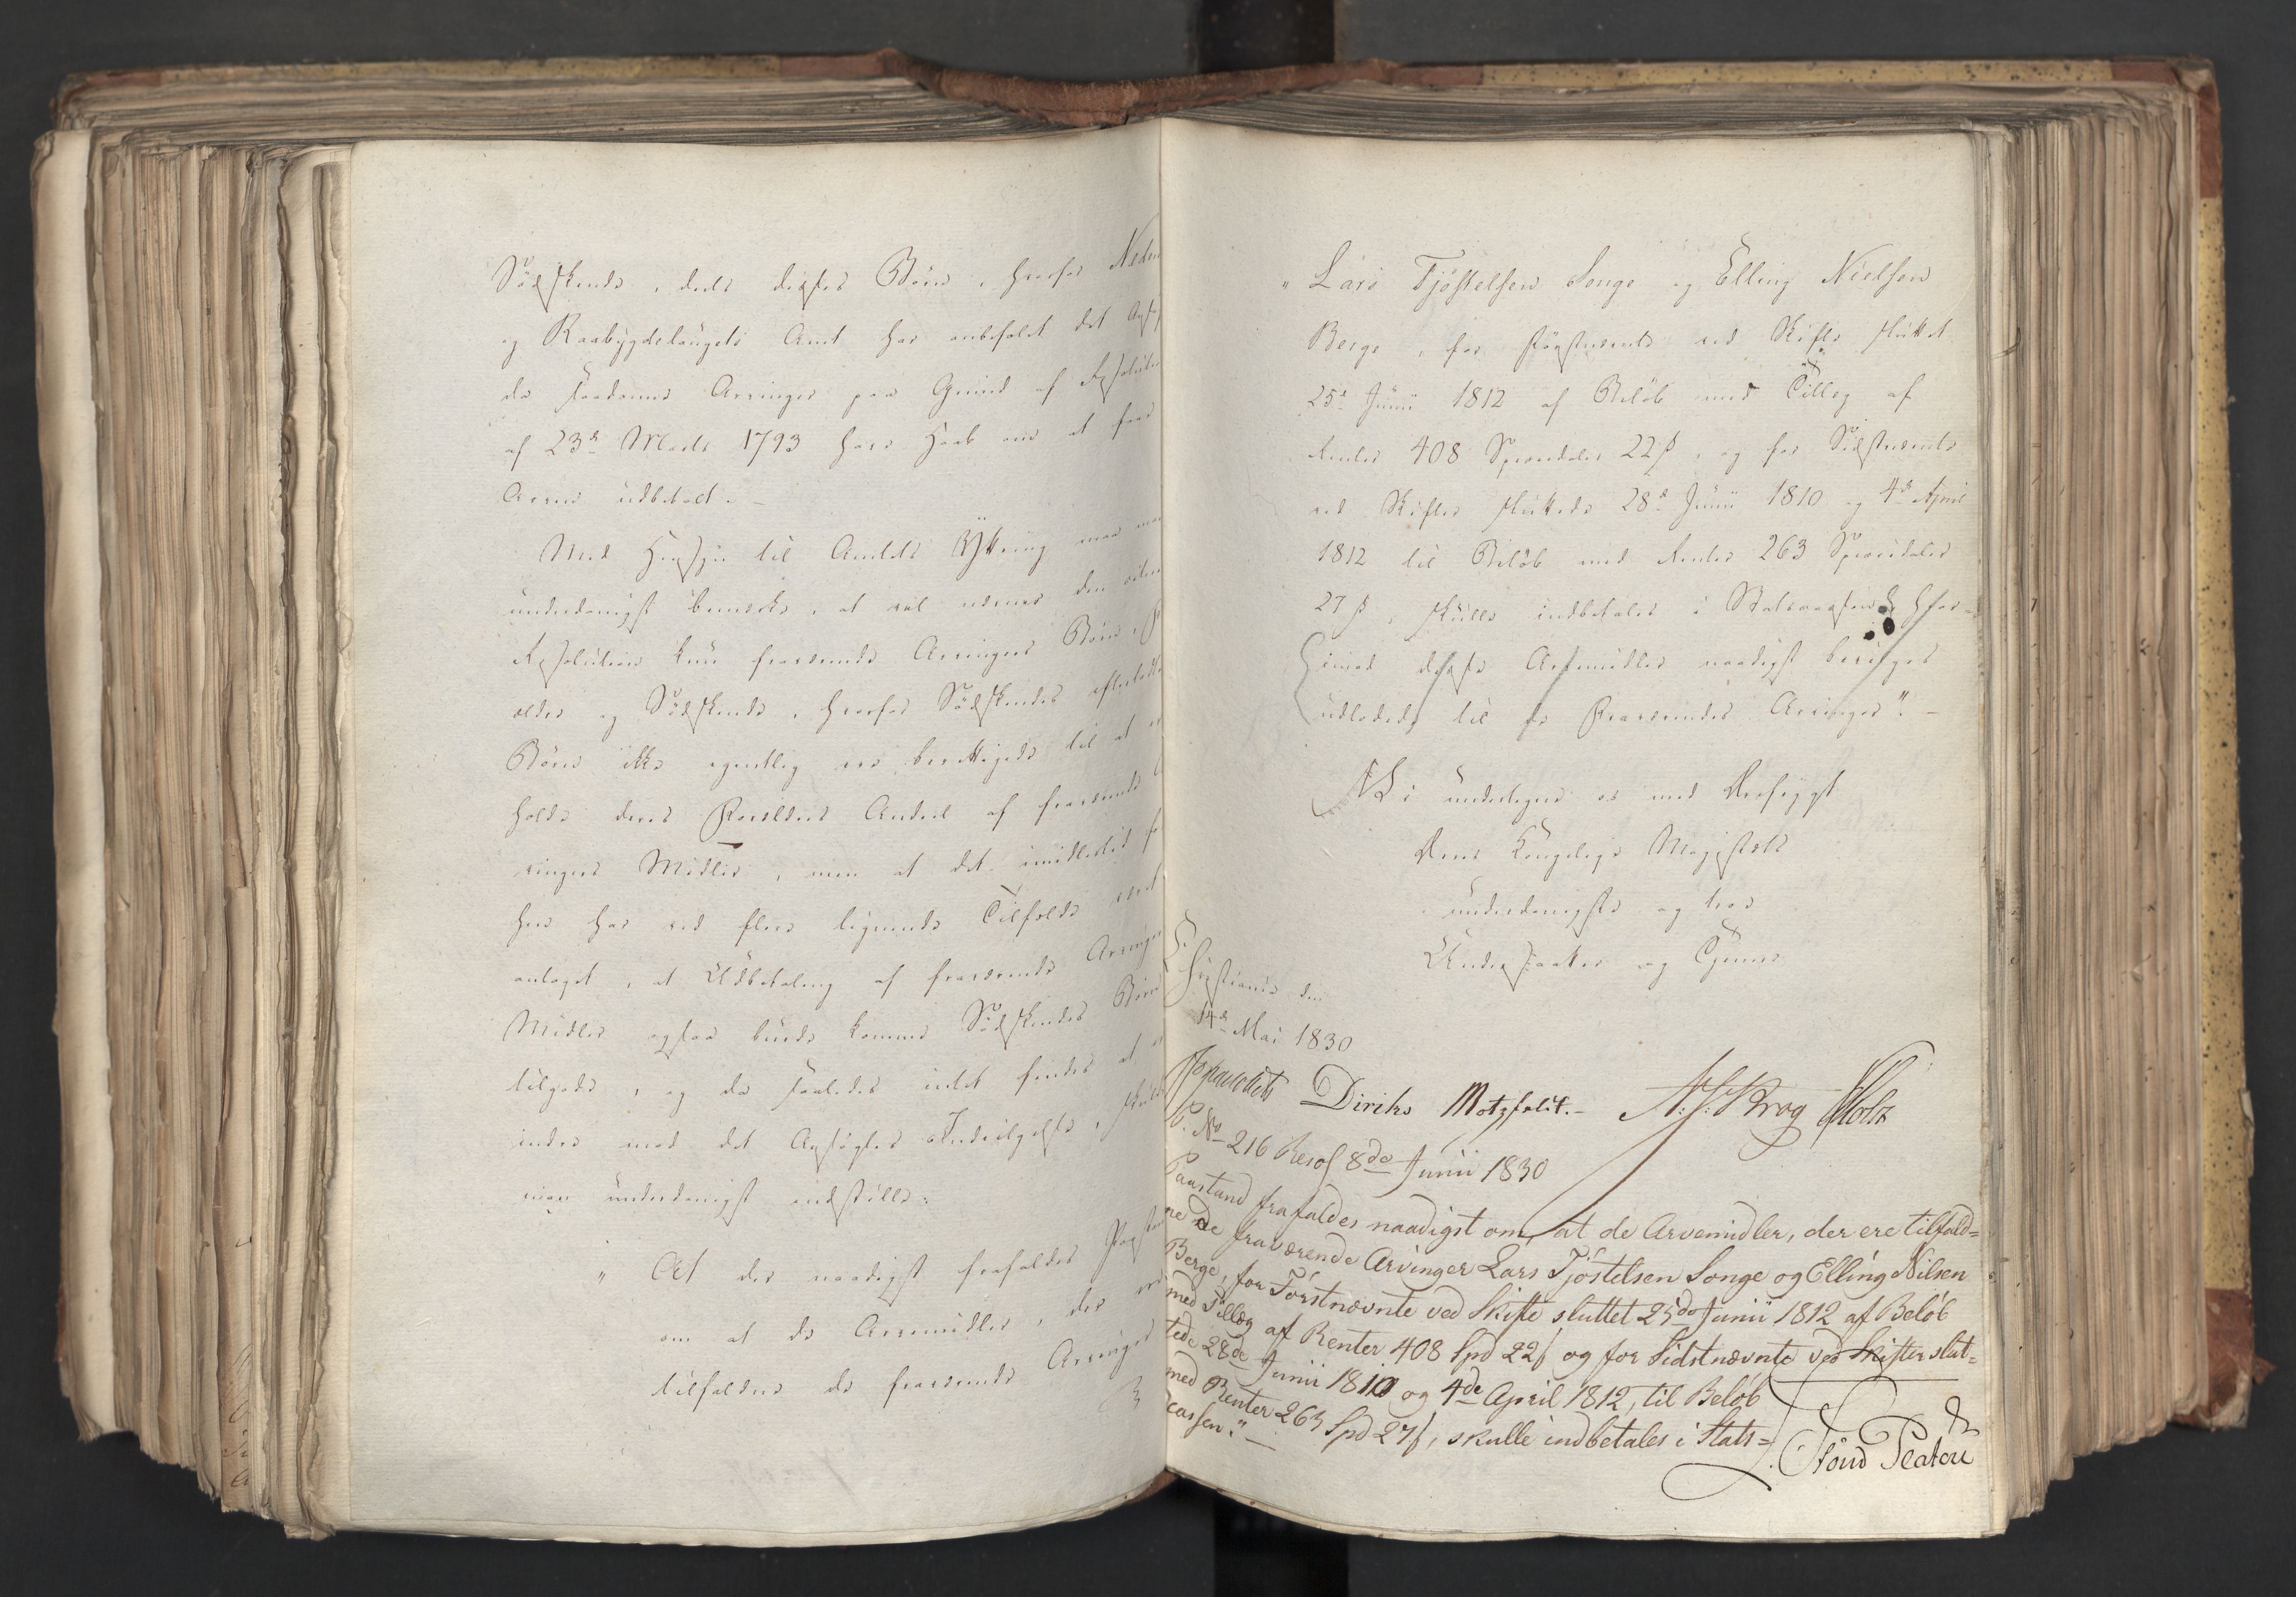 Sødskende, deels disses Børn, hvorfor Neden
og Raabygdelaugets Amt har anbefalet det Ansøg
da saadanne Arvinger paa Grund af Resolution
af 23de Marts 1793 have Haab om at faae
Arven udbetalt. —
Med Hensyn til Amtets Yttring maa man
underdanigst bemærke, at vel nævner den
Resolution kun fraværende Arvingers Børn, For
ældre og Sødskende, hvorfor Sødskendes efterladte
Børn ikke egentlig ere berettigede til at er
holde deres Forældres Andeel af fraværende
vingers Midler, men at det imidlertid
her har ved flere lignende Tilfælde været
antaget, at Udbetaling af fraværende Arvingers
Midler ogsaa burde komme Sødskendes Børn
tilgode, og da saaledes intet findes at er
indre mod det Ansøgtes Indvilgelse, skulde
man underdanigst indstille:
" At der naadigst frafaldes Paastand
om at de Arvemidler, der ere
tilfaldne de fraværende Arvinger
" Lars Tjøstelsen Songe og Elling Nielsen
Berge, for Førstnævnte ved Skifte sluttet
25de Junii 1812 af Beløb med Tillæg af
Renter 408 Speciedaler 22 s, og for Sidstnævnte
ved Skifter sluttede 28de Junii 1810 og 4de April
1812 til Beløb med Renter 263 Speciedaler
27 s, skulle indbetales i Statscassen
disse Arvemidler naadigst bevilges
udlodede til de Fraværendes Arvinger". —
Vi undertegne os med Dybeste
Deres Kongelige Majestæts
underdanigste og troe
Undersaatter og Tjenere
Christiania den
14de Mai 1830
Diriks Motzfeldt. — N. J. Krog Holst
P. No 216 Resol 8de Junii 1830
Paastand frafaldes naadigst om, at de Arvemidler, der ere tilfald=
ne de fraværende Arvinger Lars Tjøstelsen Songe og Elling Nilsen
Berge, for Førstnævnte ved Skifte sluttet 25de Junii 1812 af Beløb
med Tillæg af Renter 408 Spd 22 s og for Sidstnævnte ved Skifter slut=
tede 28de Junii 1810 og 4de April 1812, til Beløb
med Renter 263 Spd 27 s, skulle indbetales i Stats=
cassen." —